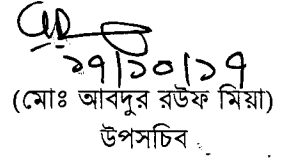 ১৭/১০/১৭
(মোঃ আবদুর রউফ মিয়া)
উপসচিব